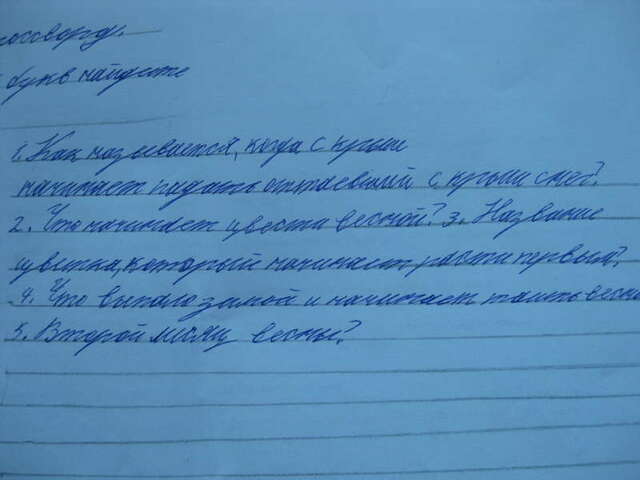 россворд.
букв найдите
1. Как называется, когда с крыши
начинает падать оттаевший с крыши снег?
2. Что начинает цвести весной? 3. Название
цветка, который начинает расти первый?
4. Что выпало зимой и начинает таить весн
5. Второй месяц весны?